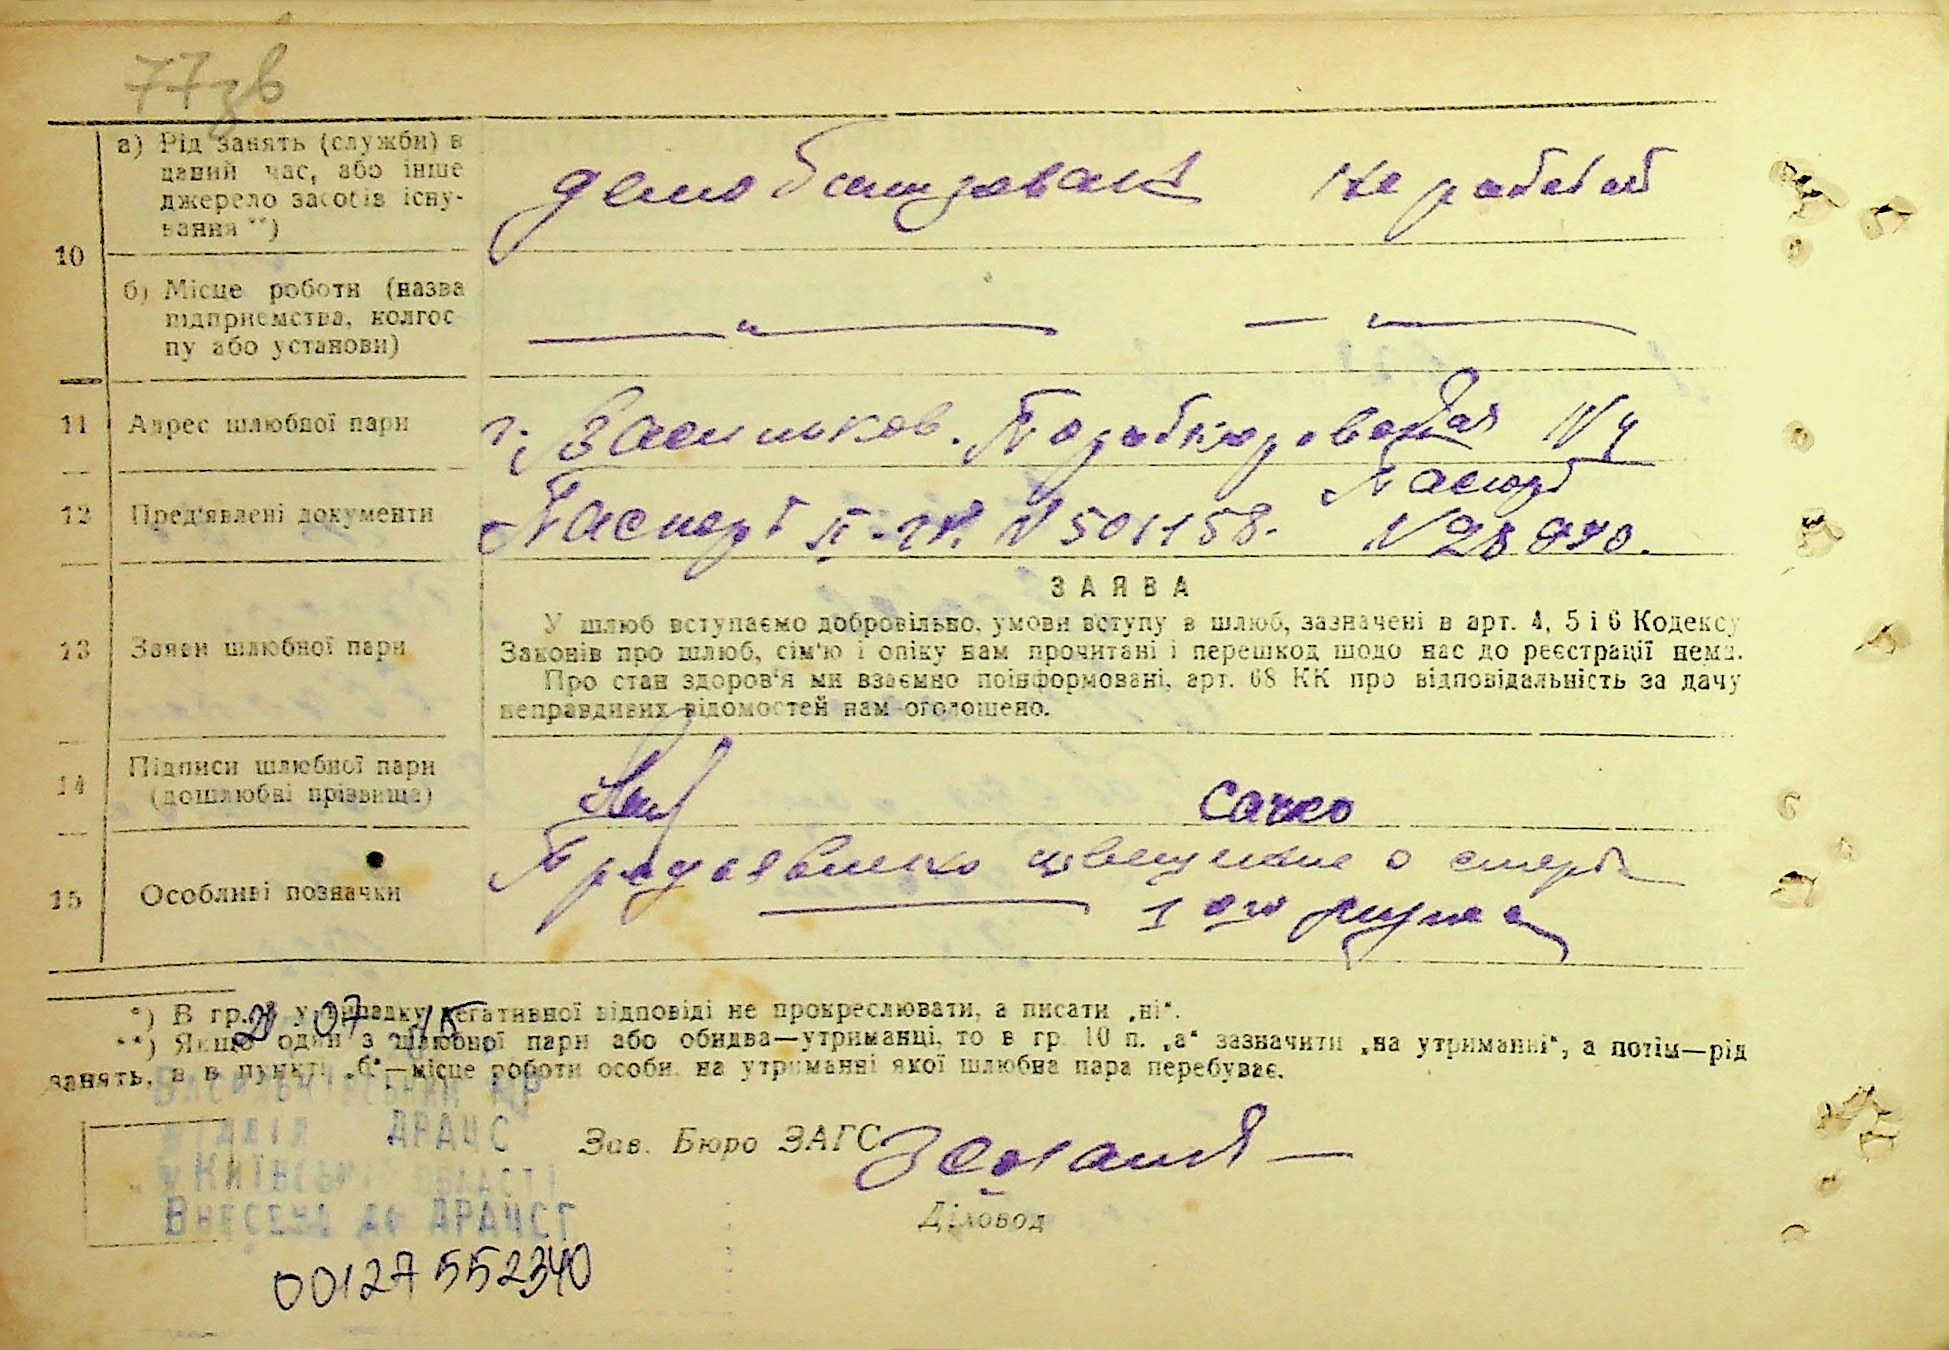 77зв
а) Рід занять (служби) в
даний час, або інше
джерело засобів існу-
вання **)
демобилизован не работает
10
б) Місце роботи (назва
підприємства, колгос
пу або установи)
— " — — " —
11 Адрес шлюбної пари
г. Васильков.
12 Пред'явлені документи
Паспорт N 501158. Паспорт
З А Я В А
13 Заяви шлюбної пари
У шлюб вступаємо добровільно, умови вступу в шлюб, зазначені в арт. 4, 5 і 6 Кодексу
Законів про шлюб, сім'ю і опіку нам прочитані і перешкод щодо нас до реєстрації нема.
Про стан здоров'я ми взаємно поінформовані, арт. 68 КК про відповідальність за дачу
неправдивих відомостей нам оголошено.
14 Підписи шлюбної пари
(дошлюбні прізвища)
Сачко
15 Особливі позначки
извещение о смерти
1ого мужа
*) В гр. у випадку негативної відповіді не прокреслювати, а писати „ні“.
**) Якщо один з шлюбної пари або обидва—утриманці, то в гр. 10 п. „а“ зазначити „на утриманні“, а потім—рід
занять, а в пункті „б“—місце роботи особи, на утриманні якої шлюбна пара перебуває.
відділ ДРАЦС
у Київській області
Внесено до ДРАЦСГ
Зав. Бюро ЗАГС
Діловод
00127552340